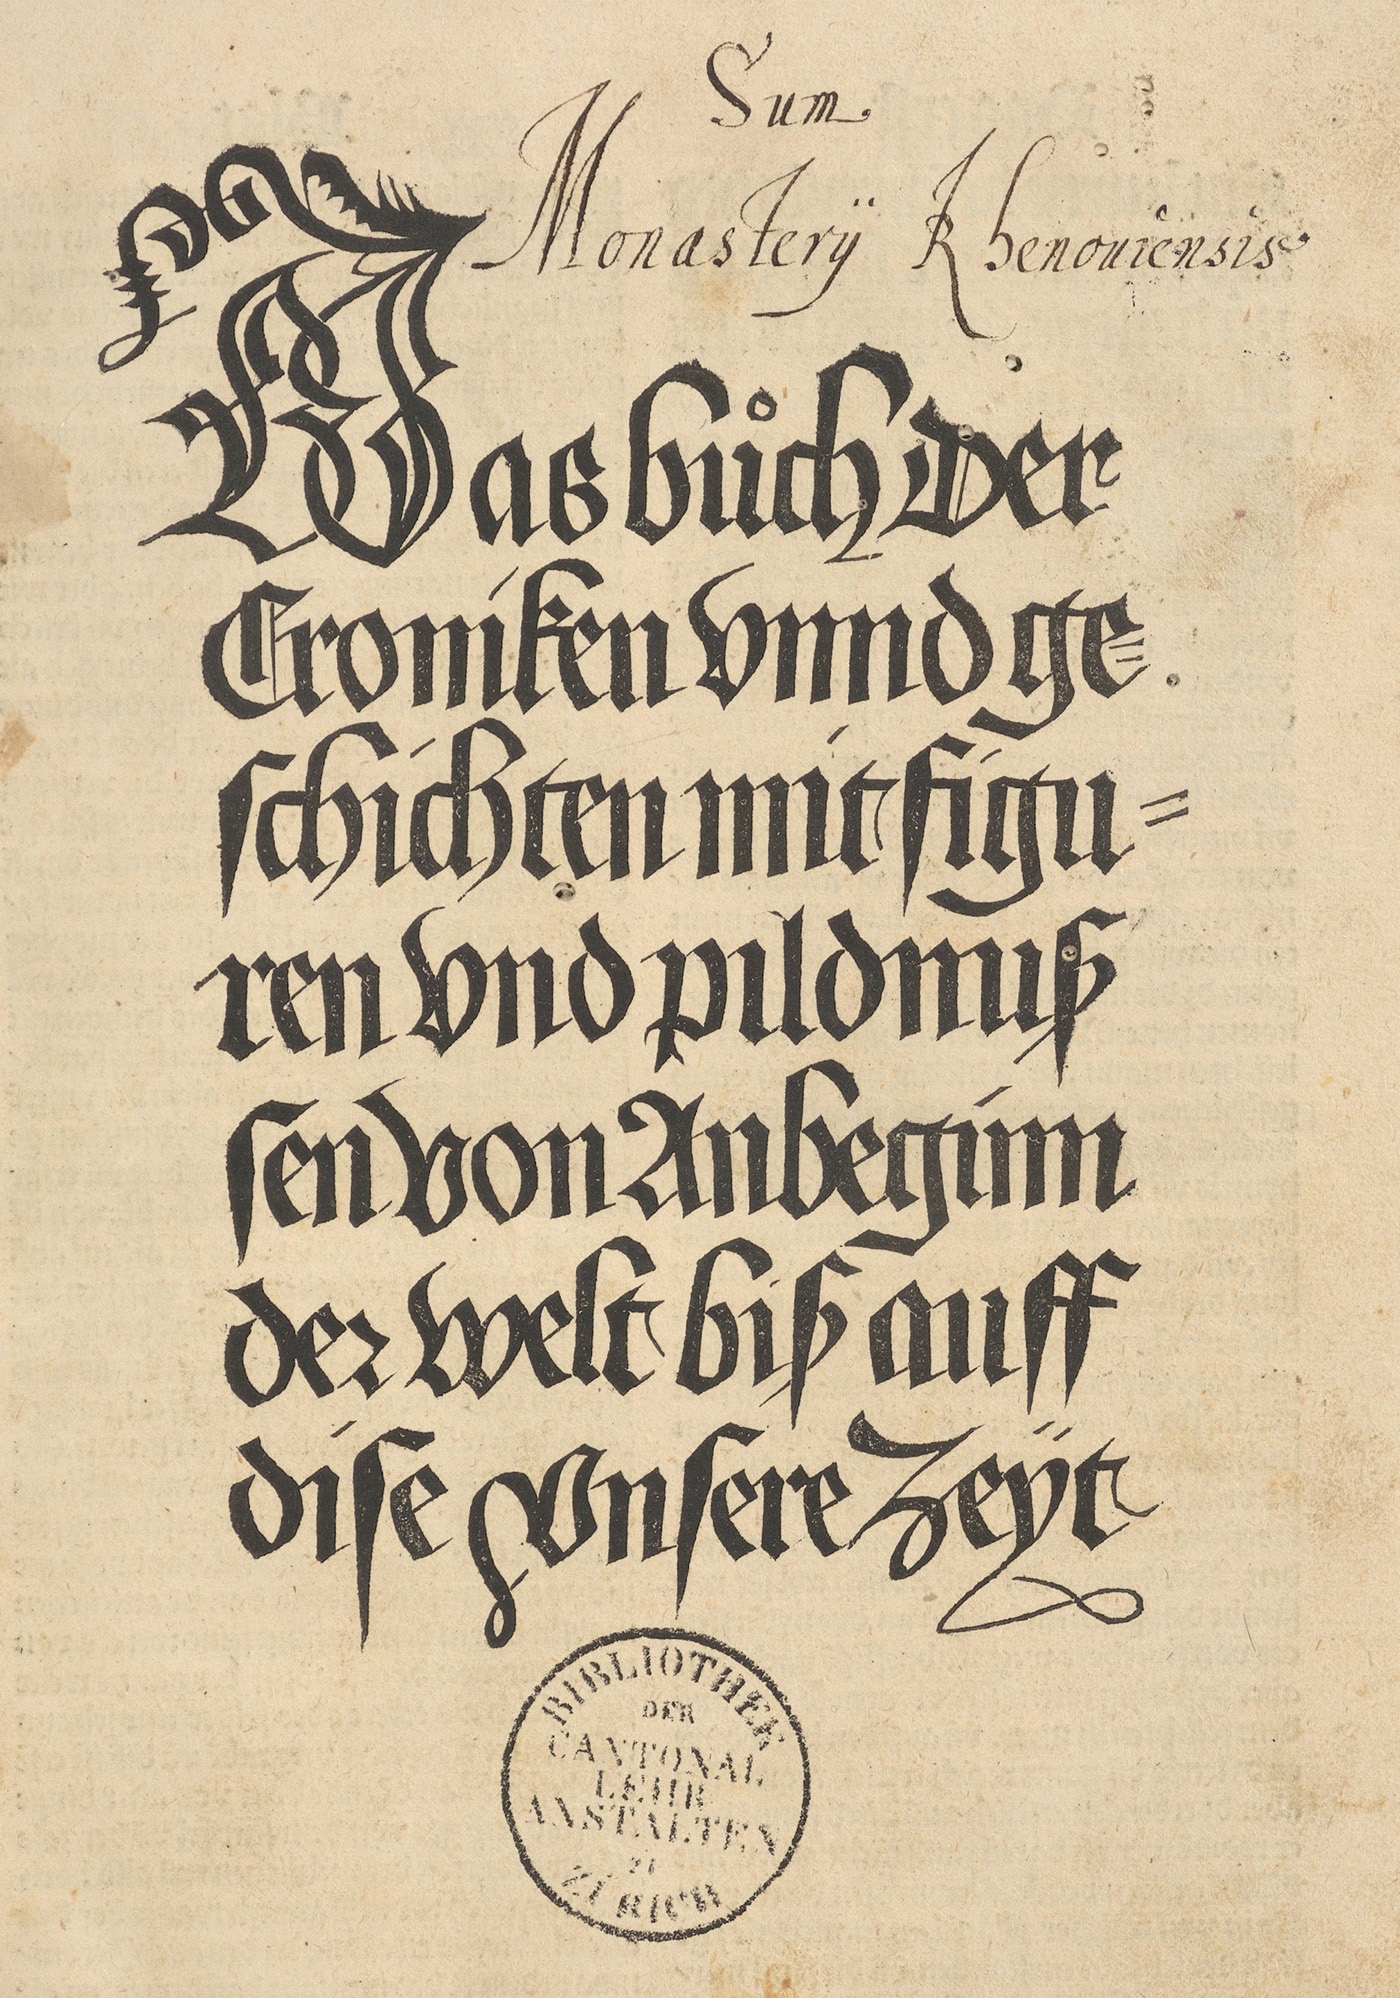 Sum
Monasterÿ Rhenouiensis
Das bůch Der
Croniken vnnd ge=
schichten mit figu=
ren vnd pildnuß
sen von Anbeginn
der welt biß auff
dise vnsere Zeÿt
BIBLIOTHEK
DER
CANTONAL
LEHR
ANSTALTEN
ZÜRICH